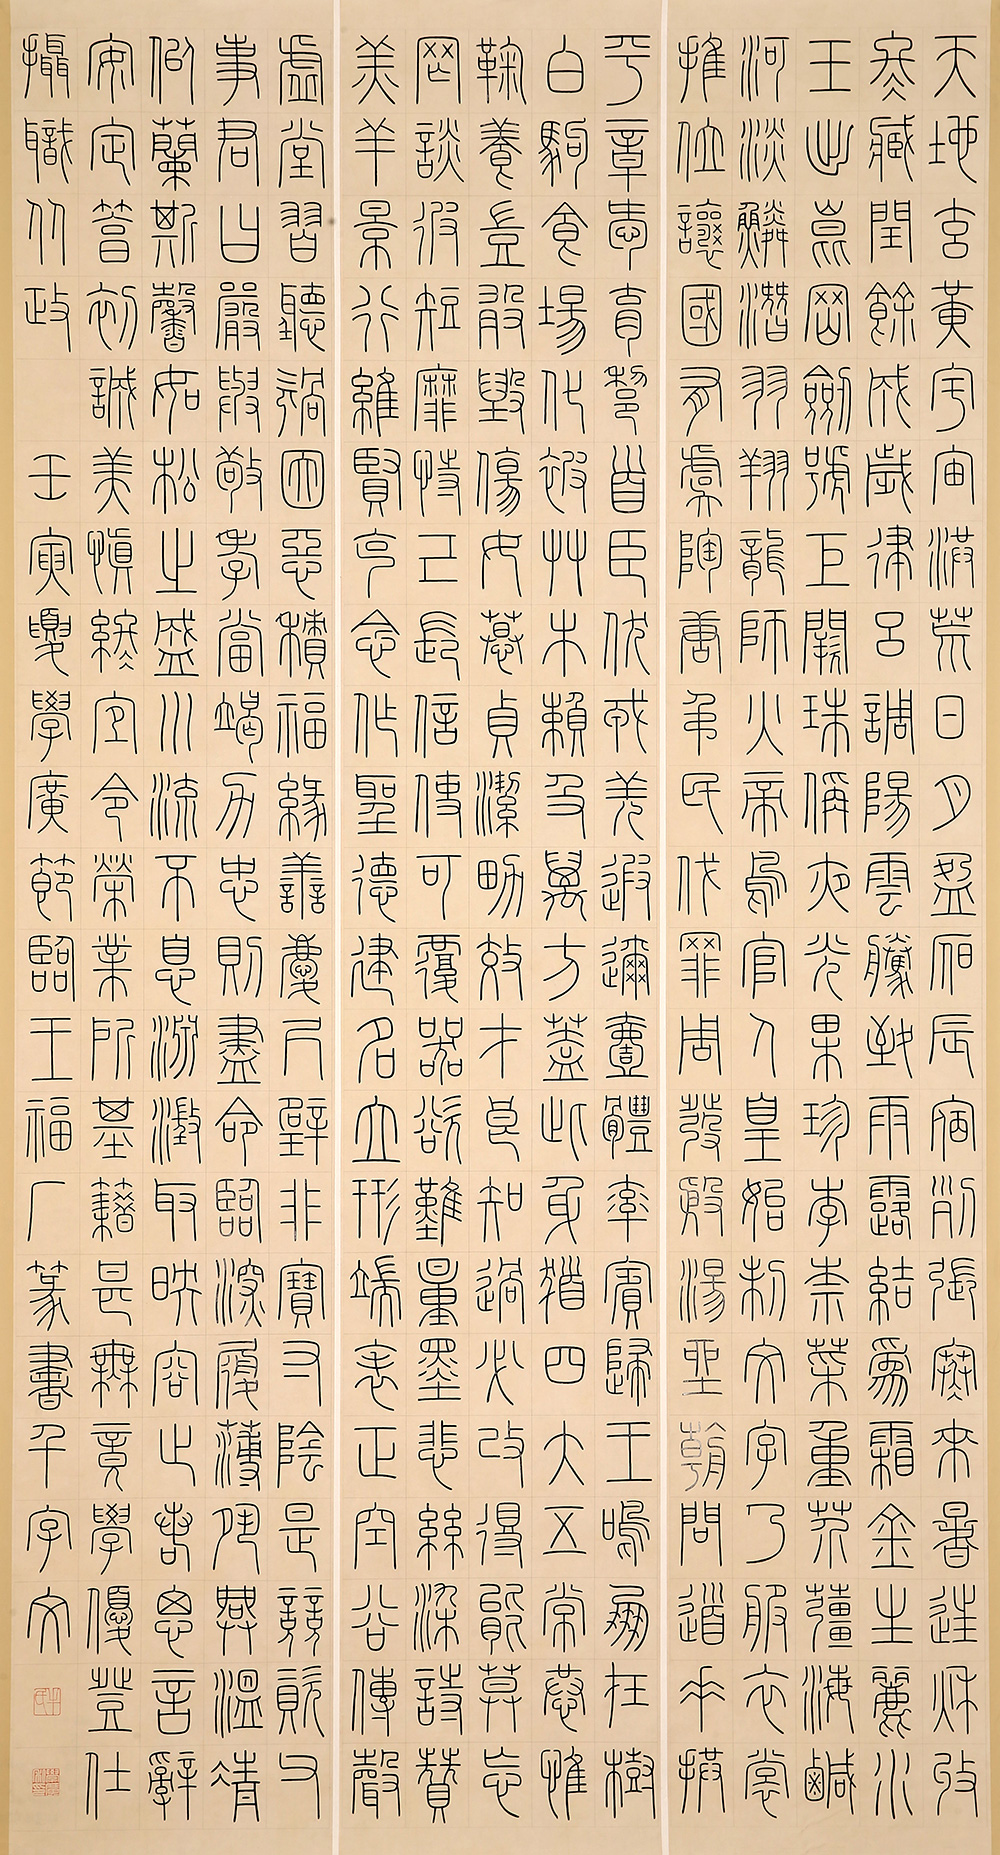 天地玄黃宇宙洪荒日月盈昃辰宿列張寒來暑往秋收
冬藏閏餘成歲律呂調陽雲騰致雨露結為霜金生麗水
玉出崑岡劍號巨闕珠稱夜光果珍李柰菜重芥薑海鹹
河淡鱗潛羽翔龍師火帝鳥官人皇始制文字乃服衣裳
推位讓國有虞陶唐弔民伐罪周發殷湯坐朝問道垂拱
平章愛育黎首臣伏戎羌遐邇壹體率賓歸王鳴鳳在樹
白駒食場化被艸木賴及萬方蓋此身髮四大五常恭惟
鞠養豈敢毀傷女慕貞潔男效才良知過必改得能莫忘
罔談彼短靡恃己長信使可覆器欲難量墨悲絲染詩讚
羔羊景行維賢克念作聖德建名立形端表正空谷傳聲
虛堂習聽禍因惡積福緣善慶尺璧非寶寸陰是競資父
事君曰嚴與敬孝當竭力忠則盡命臨深履薄夙興溫凊
似蘭斯馨如松之盛川流不息淵澄取映容止若思言辭
安定篤初誠美慎終宜令榮業所基籍甚無竟學優登仕
攝職從政 壬寅夏學廣節臨王福厂篆書千字文